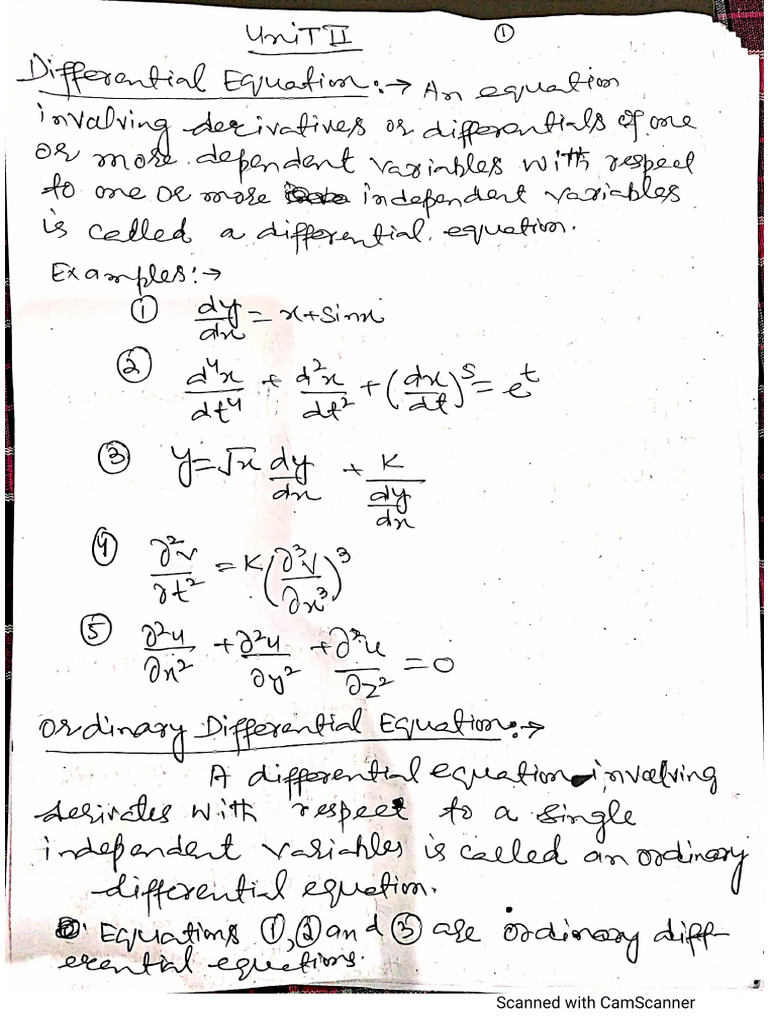 UNiT II ①
Differential Equation:→ An equation
involving derivatives or differentials of one
or more dependent variables with respect
to one or more independent variables
is called a differential equation.
Examples:→
① dy/dx = x+sinx
② d⁴x/dt⁴ + d²x/dt² + (dx/dt)⁵ = eᵗ
③ y=√x dy/dx + K/(dy/dx)
④ ∂²v/∂t² = K(∂³v/∂x³)³
⑤ ∂²u/∂x² + ∂²u/∂y² + ∂²u/∂z² = 0
Ordinary Differential Equation:→
A differential equation involving
derivates with respect to a single
independent variables is called an ordinary
differential equation.
Equations ①,② and ③ are ordinary diff-
erential equations.
Scanned with CamScanner